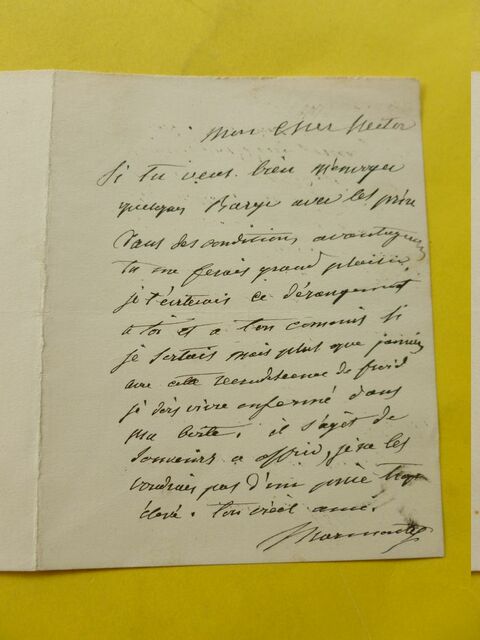 Mon Cher Hector
Si tu veux bien m'envoyer
quelques Barye avec les prix
dans des conditions avantageuses
tu me ferais grand plaisir.
je t'éviterais ce dérangement
a toi et a ton commis si
je sortais mais plus que jamais
avec cette recrudescence de froid
je dois vivre enfermé dans
ma boîte. il s'agit de
Souvenirs a offrir, je ne les
voudrais pas d'un prix trop
élevé. ton vieil ami.
Marmontel